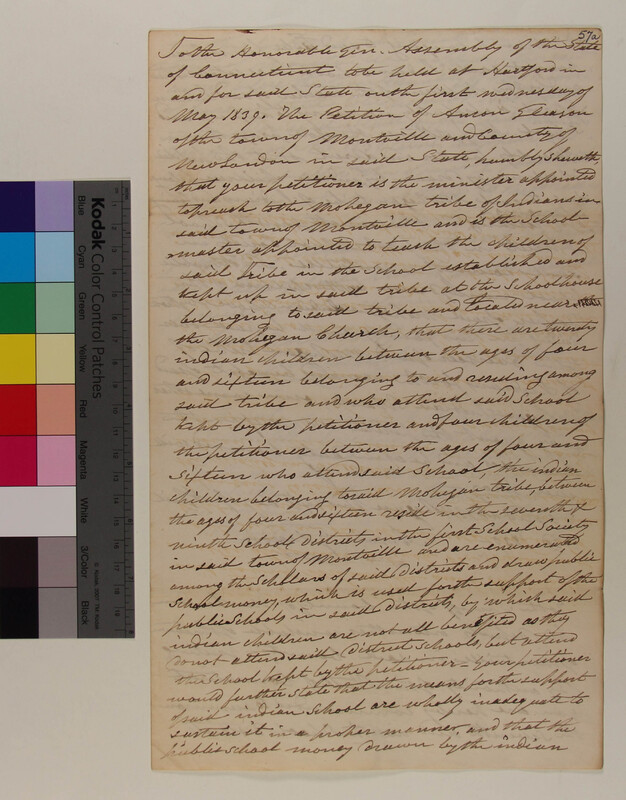 57a
To the Honorable Gen. Assembly of the State
of Connecticut to be held at Hartford in
and for said State on the first wednesday of
May 1839. The Petition of Anson Gleason
of the town of Montville and County of
New London in said State, humbly sheweth,
that your petitioner is the minister appointed
to preach to the Mohegan tribe of Indians in
said town of Montville and is the School
master appointed to teach the children of
said tribe in the School established and
kept up in said tribe at the Schoolhouse
belonging to said tribe and located near
the Mohegan Church, that there are twenty
indian children between the ages of four
and sixteen belonging to and residing among
said tribe and who attend said School
kept by the petitioner and four children of
the petitioner between the ages of four and
sixteen who attend said School, the indian
children belonging to said Mohegan tribe, between
the ages of four and sixteen reside in the seventh &
ninth School Districts in the first School Society
in said town of Montville and are enumerated
among the Scholars of said Districts and draw public
School money, which is used for the support of the
public Schools in said Districts, by which said
indian children are not all benefited as they
do not attend said District Schools, but attend
the School kept by the petitioner - Your petitioner
would further State that the means for the support
of said indian School are wholly inadequate to
sustain it in a proper manner, and that the
public school money drawn by the indian
Kodak Color Control Patches
Blue
Cyan
Green
Yellow
Red
Magenta
White
3/Color
Black
© Kodak, 2007 TM: Kodak